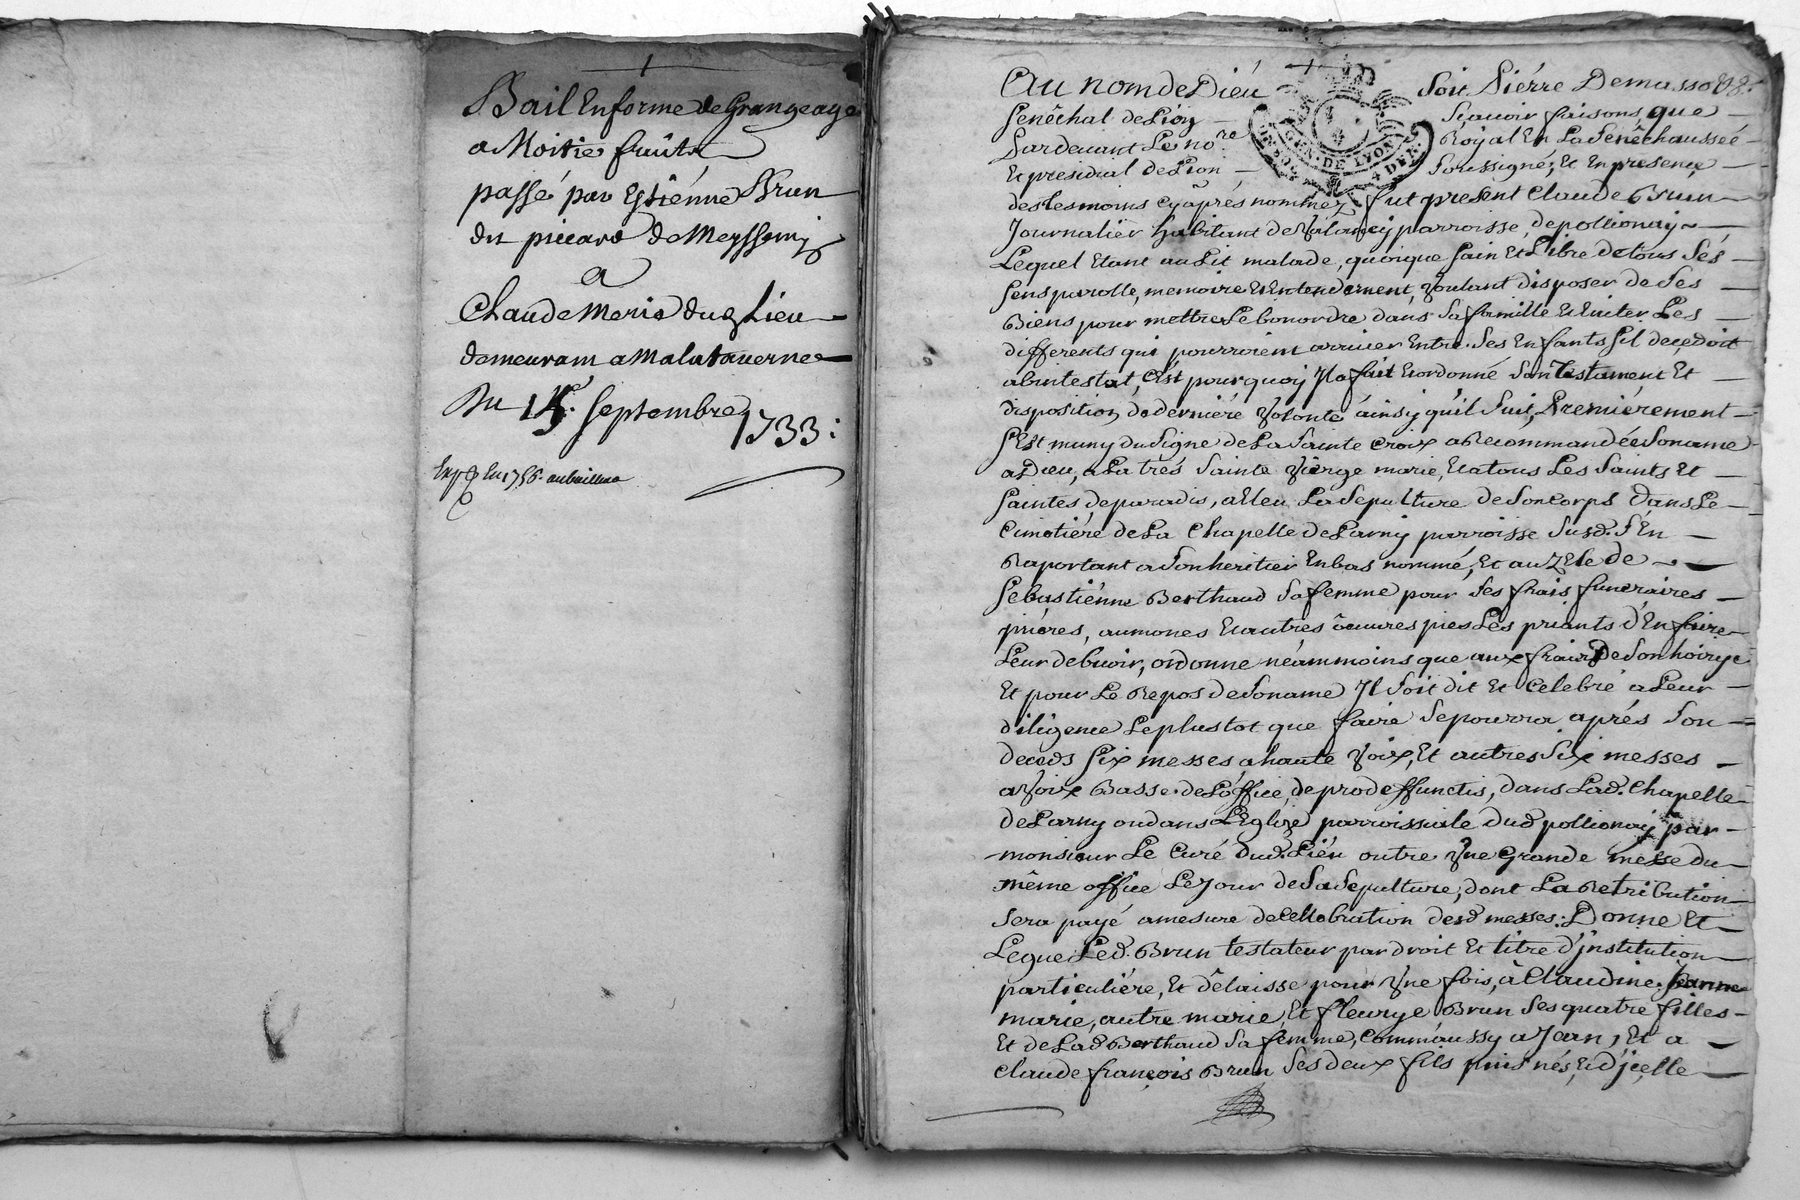 Bail Enforme de Grangeage
a Moitie fruits
passé par Estiénne Brun
du piccard de Meyssemy
a
Claude Meria du lieu
demeurant a Malataverne
Du 15e. Septembre 1733:
Exp en 1756.
Au nom de Diéu Soit Piérre Demasso
Senêchal de Lion Sçavoir faisons que
Pardevant Le no.re Royal En La Senêchaussée
Et presidial de Lion Soussigné; Et En presence
des tesmoins cyaprés nommez fut present Claude Brun
Journaliér habitant de parroisse, de pollionay
Lequel Etant au Lit malade, quoique Sain Et Libre de tous Sés
Sens parolle, memoire Et Entendement, Voulant disposer de Ses
Biens pour mettre Le bon ordre dans Sa famille Et Eviter Les
differents qui pourroient arriver Entre Ses Enfants Sil decedoit
abintestat, C'Est pourquoy Jl a fait Et ordonné Son Testament Et
disposition de derniére Volonté ainsy qu'il Suit, Premiérement
S'Est muny du Signe de La Sainte Croix a Recommandée Son ame
a Dieu, a La trés Sainte Viérge marie, Et a tous Les Saints Et
Saintes de paradis, a Eleu La Sepulture de Son Corps dans Le
Cimetiére de La Chapelle de Larny parroisse Susd. S'En
Raportant a Son heritier Enbas nommé, Et au Zele de
Sebastiénne Berthaud Sa femme pour Ses frais funeraires
priéres, aumones Et autres ôeuvres pies Les priants d'En faire
Leur debvoir, ordonne néammoins que aux frais De Son hoirye
Et pour Le Repos de Son ame Jl Soit dit Et Celebré a Leur
diligence Le plustot que faire Se pourra aprés Son
deceds Six messes a haute Voix, Et autres Six messes
a Voix Basse de L'office, de pro deffunctis, dans Lad. Chapelle
de Larny ou dans L'Eglize parroissiale dud pollionay par
monsieur Le Curé dud. Liéu outre Vne Grande messe du
même office Le Jour de Sa Sepulture, dont La Retribution
Sera payé a mesure de Cellebration desd messes: Donne Et
Legue Led. Brun testateur par droit Et titre d'jnstitution
particuliére, Et délaisse pour Vne fois, à Claudine Jeanne
marie, autre marie, Et fleurye Brun Ses quatre filles
Et de Lad Berthaud Sa femme, Comm'aussy a Jean, Et a
Claude françois Brun Ses deux fils puis nés, Et d'jcelle